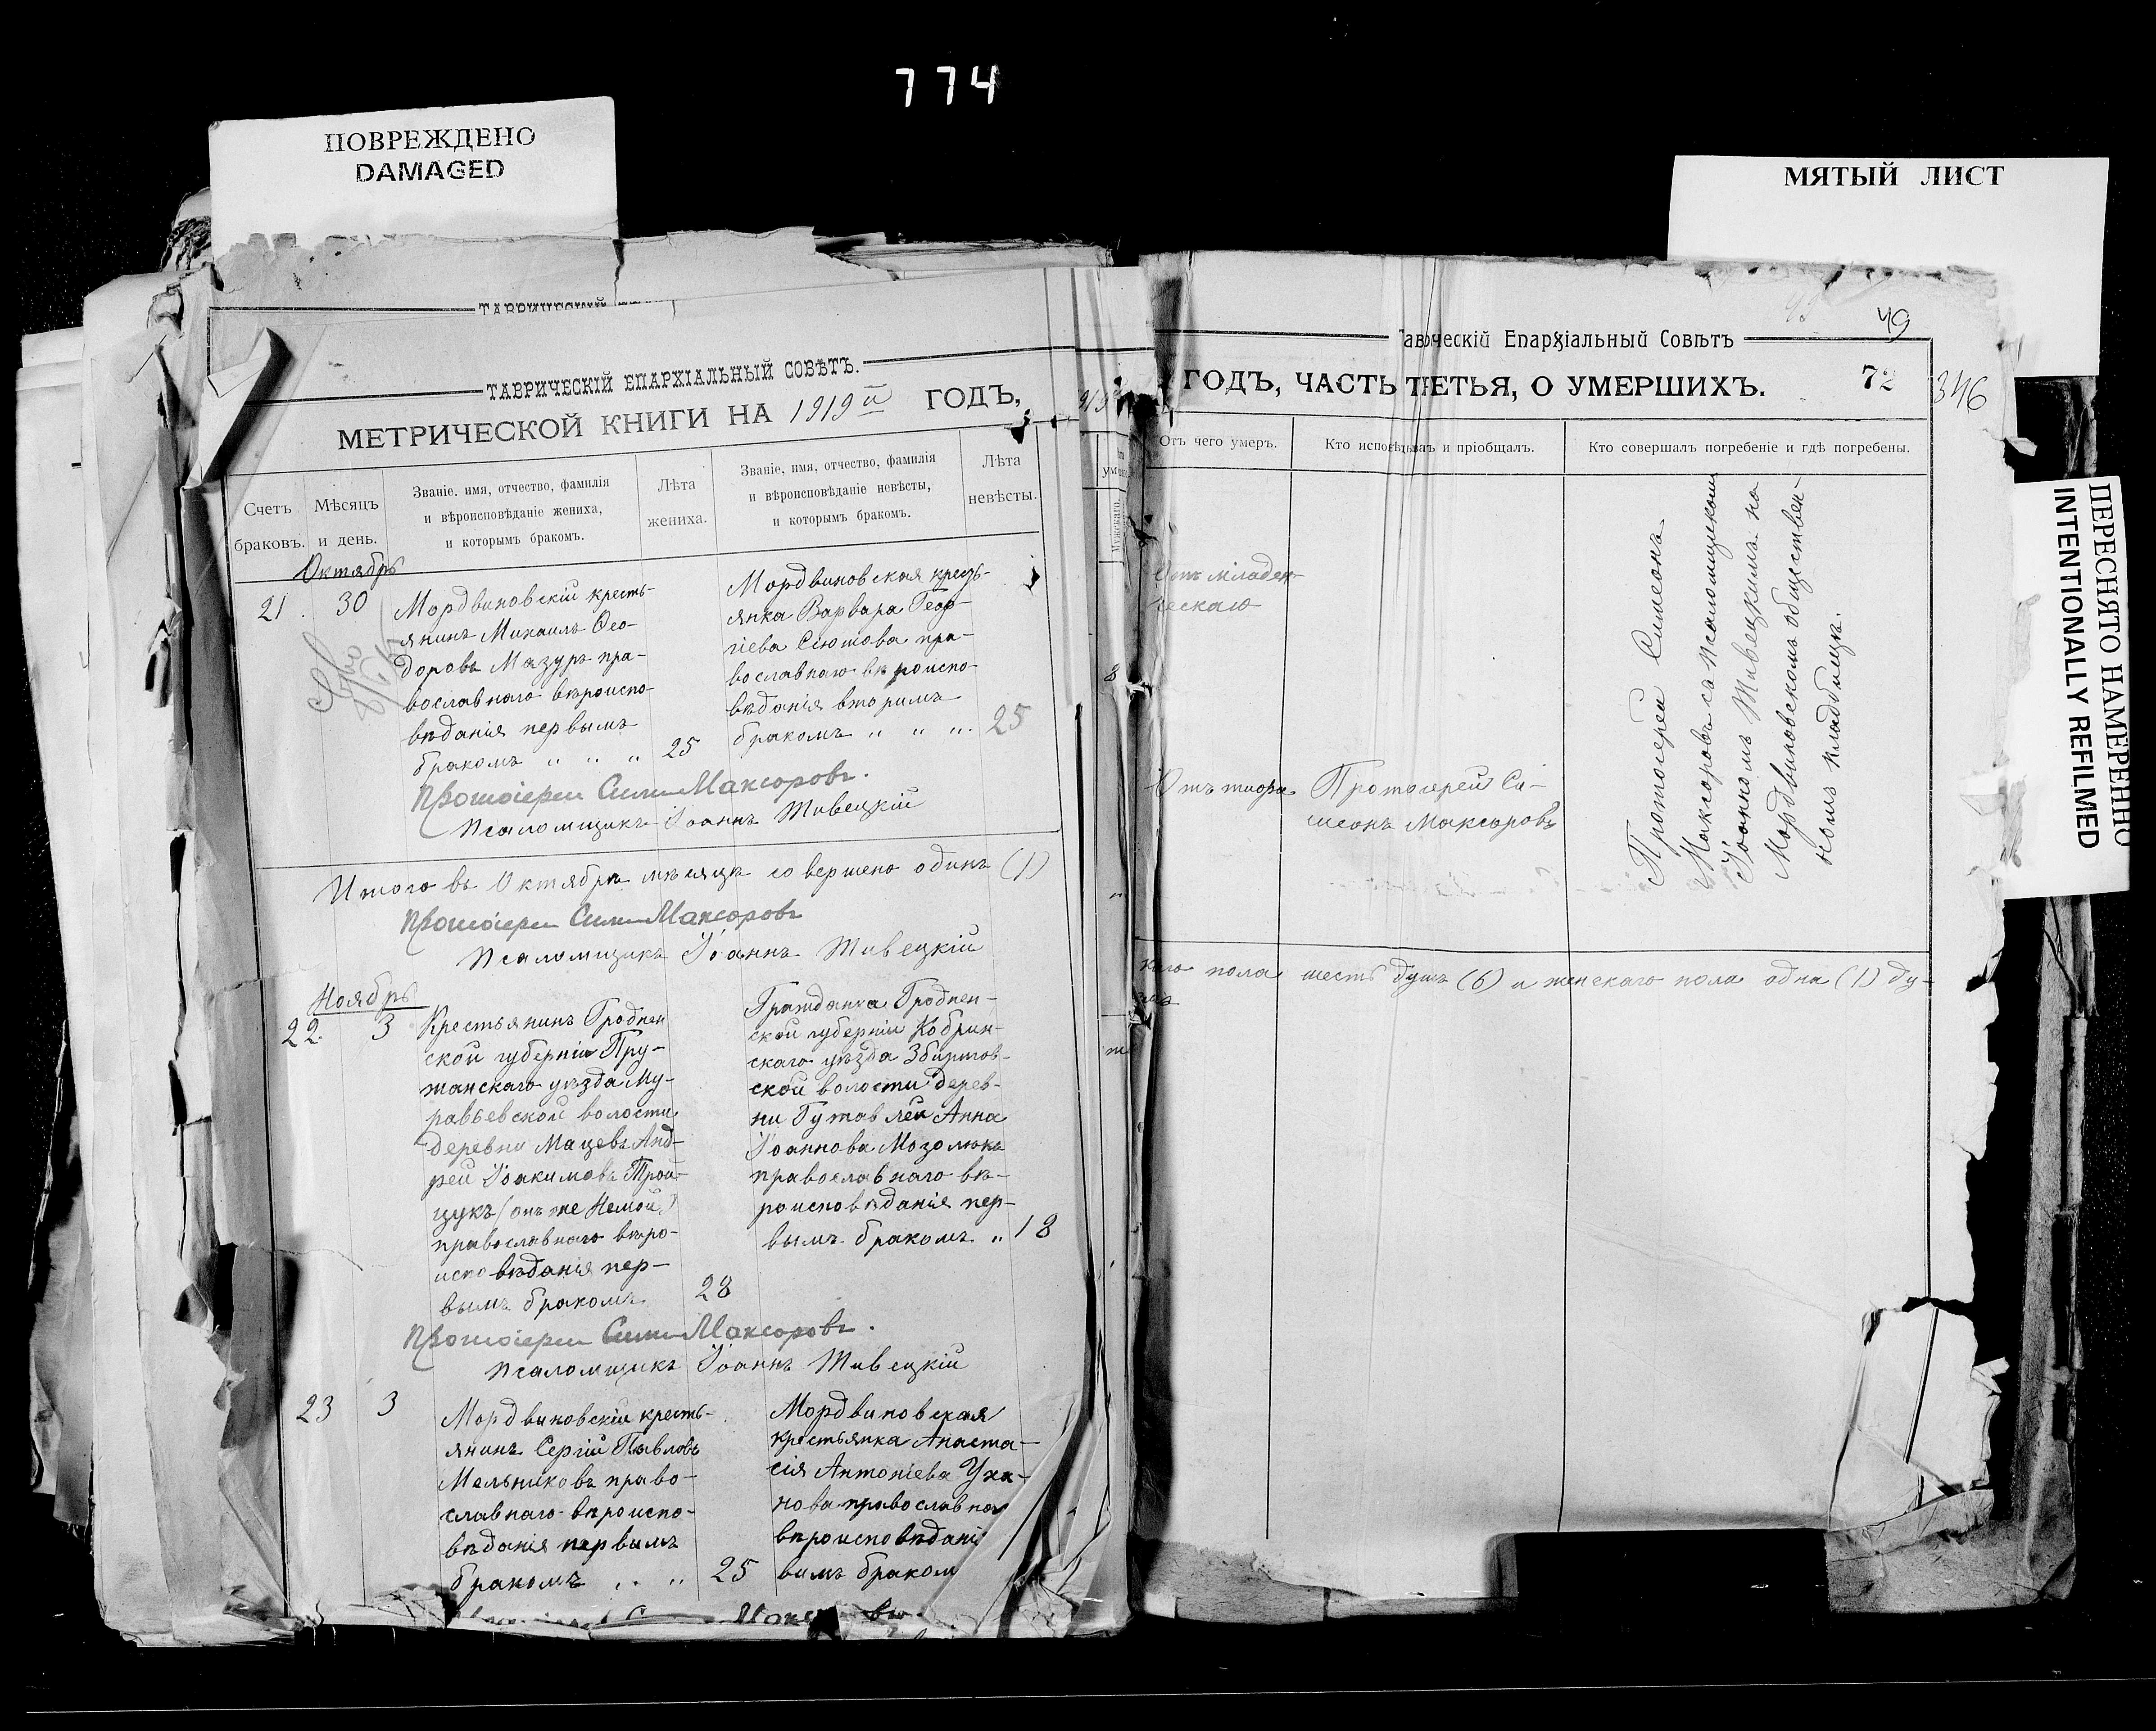 774
ПОВРЕЖДЕНО
DAMAGED
МЯТЫЙ ЛИСТ
ПЕРЕСНЯТО НАМЕРЕННО
INTENTIONALLY REFILMED
ТАВРИЧЕСКІЙ ЕПАРХІАЛЬНЫЙ СОВѢТЪ.
МЕТРИЧЕСКОЙ КНИГИ НА 1919й ГОДЪ,
Счетъ браковъ.
Мѣсяцъ и день.
Званіе, имя, отчество, фамилія
и вѣроисповѣданіе жениха,
и которымъ бракомъ.
Лѣта жениха.
Званіе, имя, отчество, фамилія
и вѣроисповѣданіе невѣсты,
и которымъ бракомъ.
Лѣта невѣсты.
Октябрь
21. 30
Мордвиновскій кресть-
янинъ Михаилъ Ѳео-
доровъ Мазуръ пра-
вославнаго вѣроиспо-
вѣданія первымъ
бракомъ „ „ „ 25
Мордвиновская кресть-
янка Варвара Геор-
гіева Сютова пра-
вославнаго вѣроиспо-
вѣданія вторымъ
бракомъ „ „ „ 25
Протоіерей Сим Максоровъ.
Псаломщикъ Іоаннъ Живецкій
Итого въ Октябрѣ мѣсяцѣ совершено одинъ (1)
Протоіерей Сим Максоровъ
Псаломщикъ Іоаннъ Живецкій
Ноябрь
22. 3
Крестьянинъ Гроднен
ской губерніи Пру-
жанскаго уѣзда Му-
равьевской волости
деревни Мацевъ Анд-
рей Іоакимовъ Трои-
цукъ (онъ же Немой)
православнаго вѣро-
исповѣданія пер-
вымъ бракомъ 28
Гражданка Гроднен-
ской губерніи Кобрин-
скаго уѣзда Збиргов-
ской волости дерев-
ни Гутавлей Анна
Іоаннова Мозолюкъ
православнаго вѣ-
роисповѣданія пер-
вымъ бракомъ „ 18
Протоіерей Сим Максоровъ.
Псаломщикъ Іоаннъ Живецкій
23 3
Мордвиновскій кресть-
янинъ Сергій Павловъ
Мельниковъ право-
славнаго вѣроиспо-
вѣданія первымъ
бракомъ „ „ 25
Мордвиновская
крестьянка Анаста-
сія Антоніева Уха-
нова православна
вѣроисповѣдані
вымъ браком
Таврическій Епархіальный Совѣтъ
49
ГОДЪ, ЧАСТЬ ТРЕТЬЯ, О УМЕРШИХЪ.
72
346
Отъ чего умеръ.
Кто исповѣдывалъ и пріобщалъ.
Кто совершалъ погребеніе и гдѣ погребены.
Мужскаго.
Отъ младен-
ческаго
Отъ тифа
Протоіерей Си-
меонъ Максоровъ
Протоіерей Симеонъ
Максоровъ съ псаломщикомъ
Іоанномъ Живецкимъ на
Мордвиновскомъ обществен-
номъ кладбищѣ.
каго пола шесть душъ (6) и женскаго пола одна (1) ду-